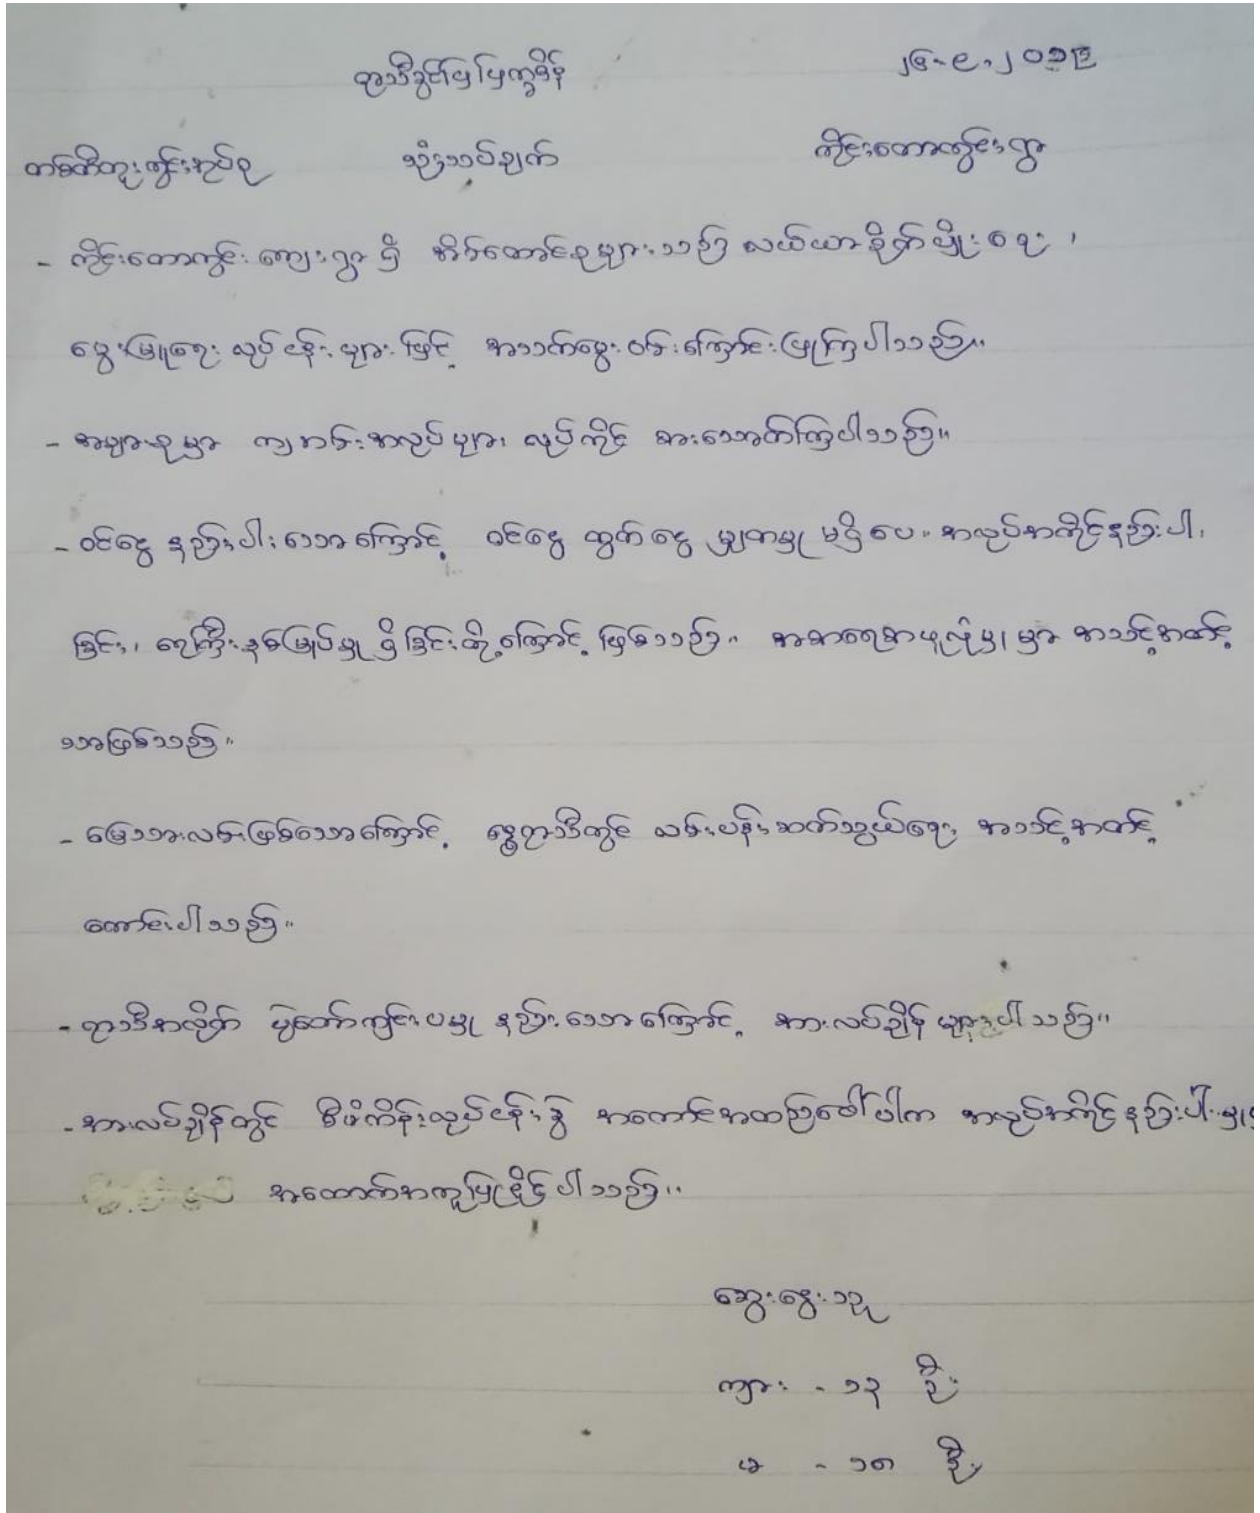 ရာသီခွင်ပြပြက္ခဒိန် ၂၆-၉-၂၀၁၉
တစ်တီတူးတွင်းအုပ်စု သုံးသပ်ချက် ကိုင်းတောတွင်းရွာ
- ကိုင်းတောတွင်းကျေးရွာရှိ အိမ်ထောင်စုများသည် လယ်ယာစိုက်ပျိုးရေး၊
မွေးမြူရေးလုပ်ငန်းများဖြင့် အသက်မွေးဝမ်းကြောင်းပြုကြပါသည်။
- အများစုမှာ ကျဘမ်းအလုပ်များ လုပ်ကိုင် စားသောက်ကြပါသည်။
- ဝင်ငွေ နည်းပါးသောကြောင့် ဝင်ငွေ ထွက်ငွေ မျှတမှု မရှိပေ။ အလုပ်အကိုင်နည်းပါး
ခြင်း၊ ရေကြီးနစ်မြုပ်မှု ရှိခြင်းတို့ကြောင့် ဖြစ်သည်။ အစားရေစာဖူလုံမှုမှာ အသင့်အတင့်
သာဖြစ်သည်။
- မြေသားလမ်းဖြစ်သောကြောင့် နွေရာသီတွင် လမ်းပန်းဆက်သွယ်ရေး အသင့်အတင့်
ကောင်းပါသည်။
- ရာသီအလိုက် ပွဲတော်ကျင်းပမှု နည်းသောကြောင့် အားလပ်ချိန် များပါသည်။
- အားလပ်ချိန်တွင် စီမံကိန်းလုပ်ငန်းခွဲ အကောင်အထည်ဖေါ်ပါက အလုပ်အကိုင်နည်းပါးမှု
အထောက်အကူပြုနိုင်ပါသည်။
ဆွေးနွေးသူ
ကျား - ၁၃ ဦး
မ - ၁၈ ဦး